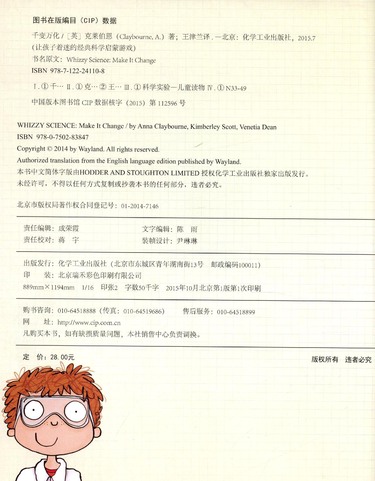 图书在版编目（CIP）数据
千变万化 /［英］克莱伯恩（Claybourne, A.）著；王津兰译 . —北京：化学工业出版社，2015.7
（让孩子着迷的经典科学启蒙游戏）
书名原文：Whizzy Science: Make It Change
ISBN 978-7-122-24110-8
Ⅰ.①千… Ⅱ.①克… ②王… Ⅲ.①科学实验－儿童读物 Ⅳ.①N33-49
中国版本图书馆 CIP 数据核字（2015）第 112596 号
WHIZZY SCIENCE: Make It Change / by Anna Claybourne, Kimberley Scott, Venetia Dean
ISBN 978-0-7502-83847
Copyright © 2014 by Wayland. All rights reserved.
Authorized translation from the English language edition published by Wayland.
本书中文简体字版由HODDER AND STOUGHTON LIMITED 授权化学工业出版社独家出版发行。
未经许可，不得以任何方式复制或抄袭本书的任何部分，违者必究。
北京市版权局著作权合同登记号：01-2014-7146
责任编辑：成荣霞 文字编辑：陈 雨
责任校对：蒋 宇 装帧设计：尹琳琳
出版发行：化学工业出版社（北京市东城区青年湖南街13号 邮政编码100011）
印 装：北京瑞禾彩色印刷有限公司
889mm×1194mm 1/16 印张2 字数50千字 2015年10月北京第1版第1次印刷
购书咨询：010-64518888（传真：010-64519686） 售后服务：010-64518899
网 址：http://www.cip.com.cn
凡购买本书，如有缺损质量问题，本社销售中心负责调换。
定 价：28.00元 版权所有 违者必究